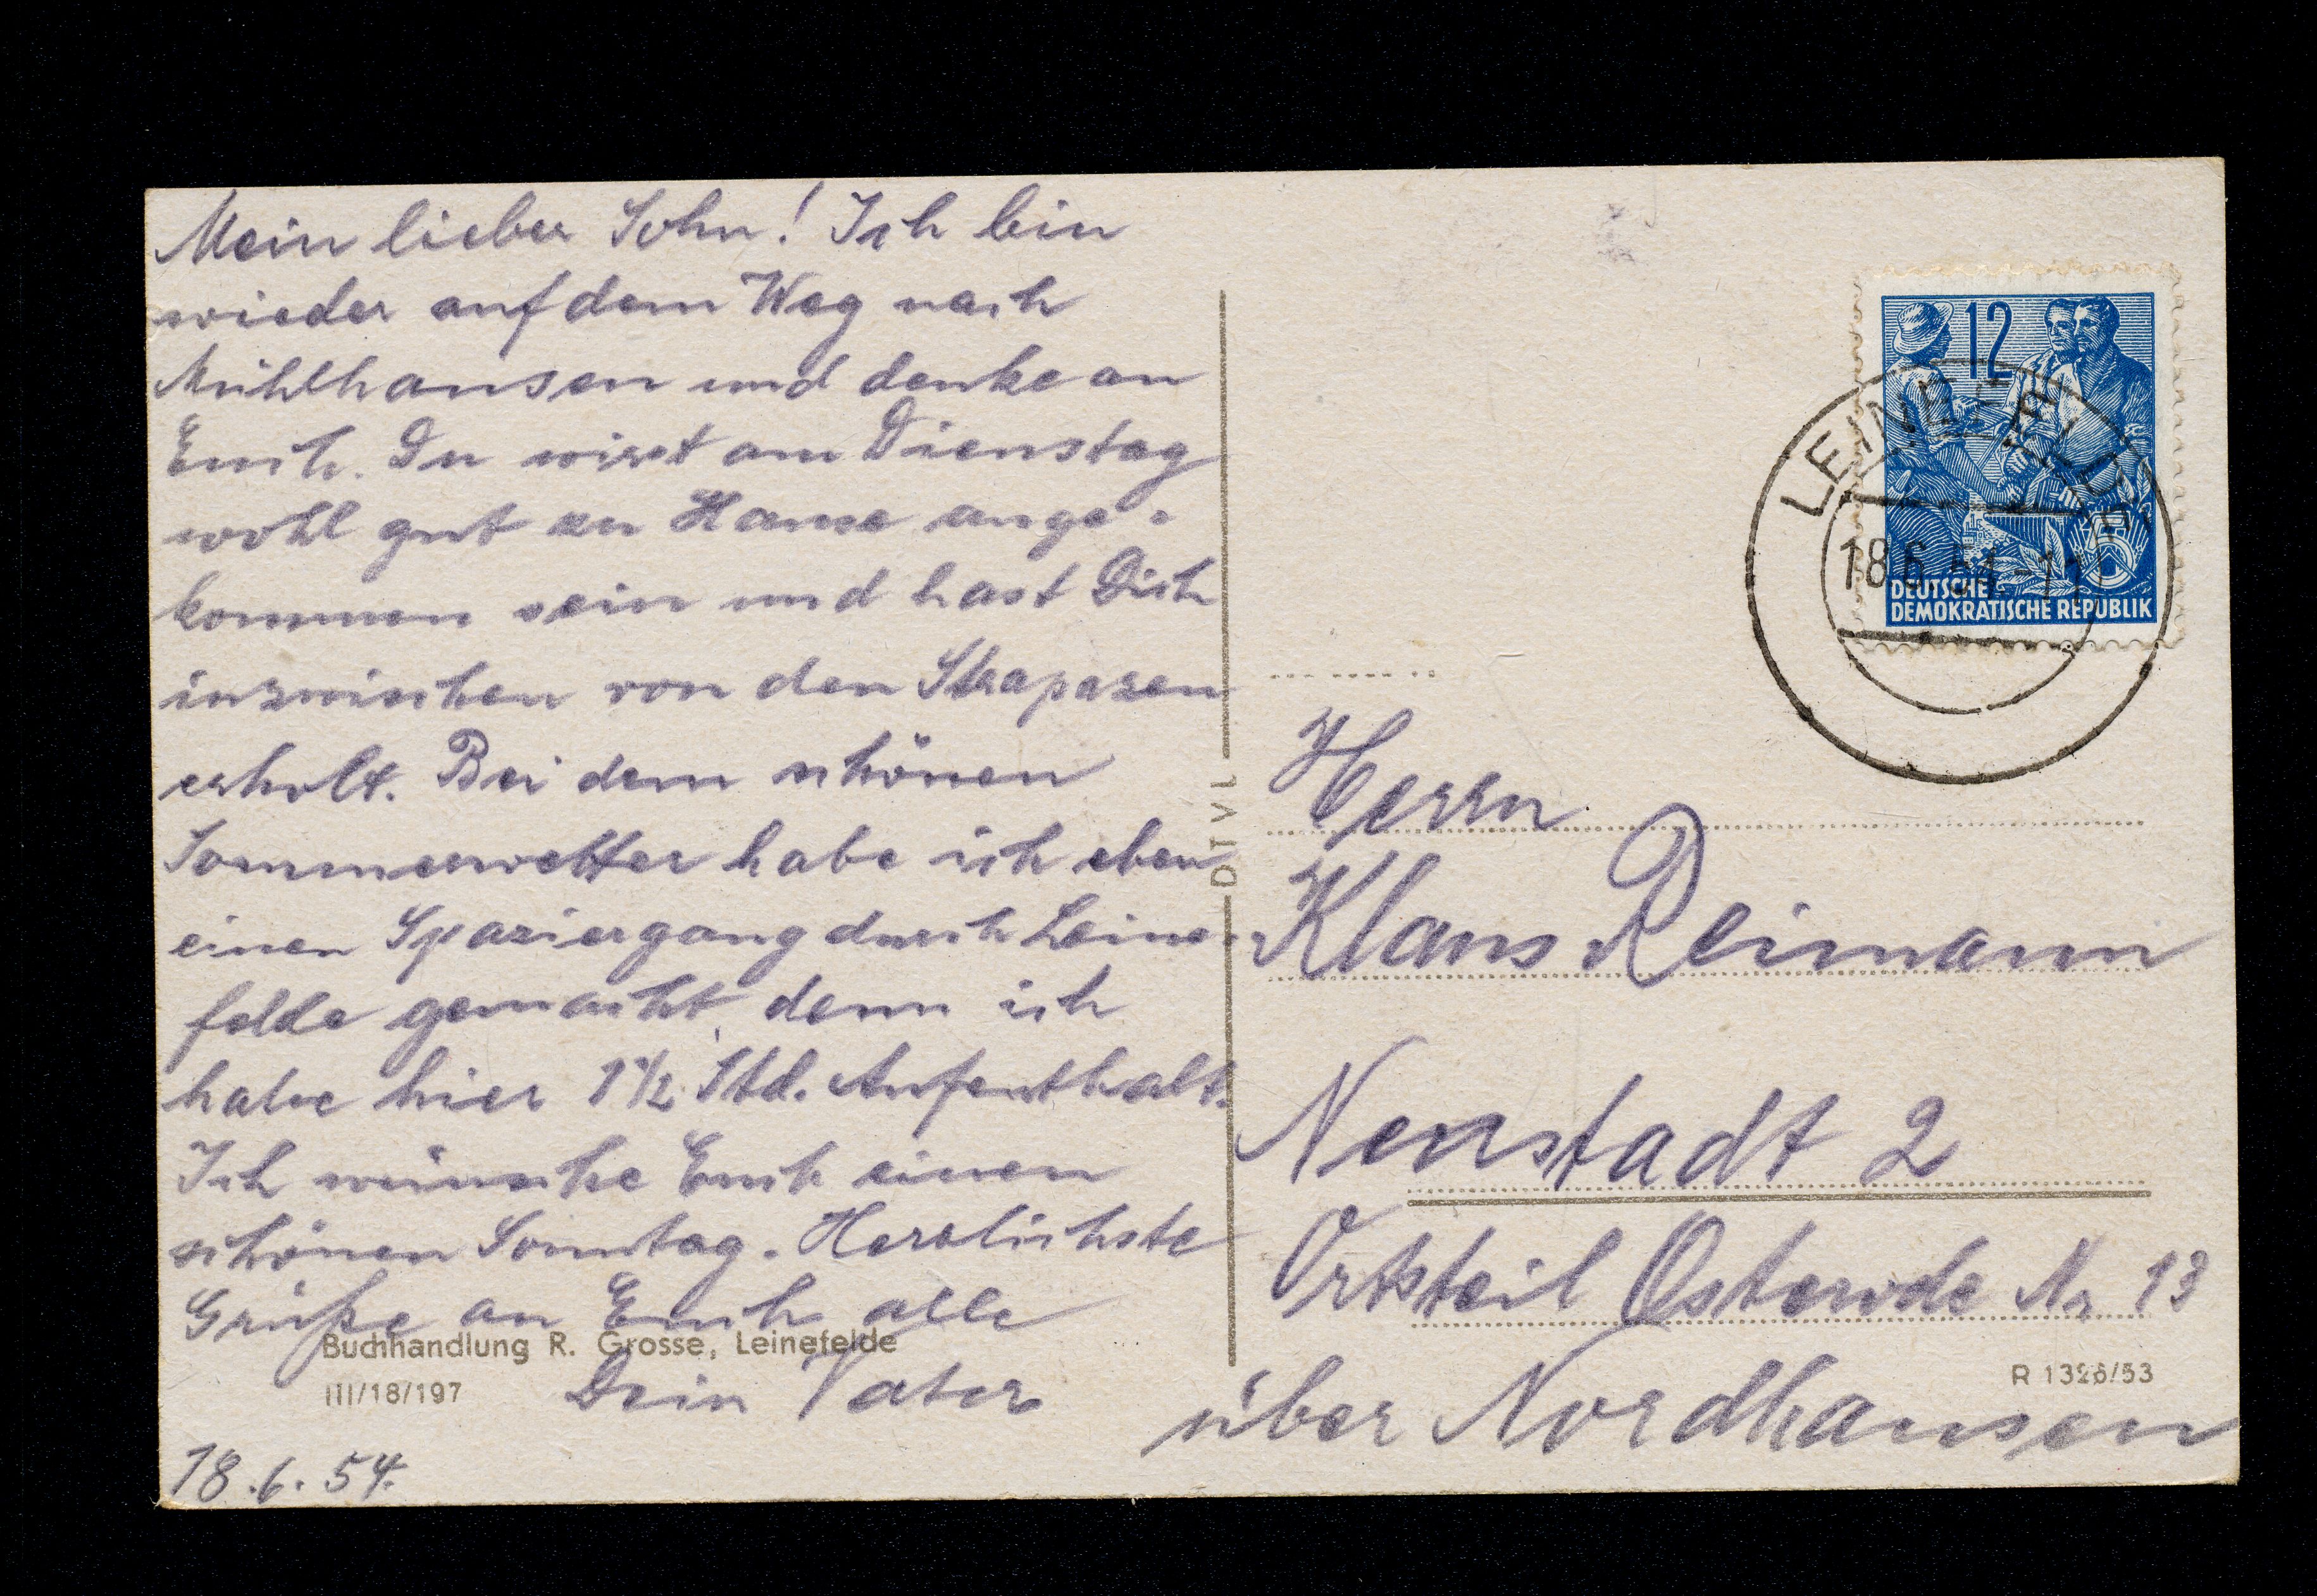 Mein lieber Sohn! Ich bin
wieder auf dem Weg nach
Mühlhausen und denke an
Euch. Du wirst am Dienstag
wohl gut zu Hause ange-
kommen sein und hast Dich
inzwischen von den Strapazen
erholt. Bei dem schönen
Sommerwetter habe ich eben
einen Spaziergang durch Leine-
felde gemacht, denn ich
habe hier 1 1/2 Std. Aufenthalt.
Ich wünsche Euch einen
schönen Sonntag. Herzlichste
Grüße an Euch alle
Dein Vater
18.6.54.
Buchhandlung R. Grosse, Leinefelde
III/18/197
DTVL
12
DEUTSCHE
DEMOKRATISCHE REPUBLIK
LEINEFELDE
18.6.54-11
Herrn
Klaus Reimann
Neustadt 2
Ortsteil Osterode Nr 13
über Nordhausen
R 1326/53